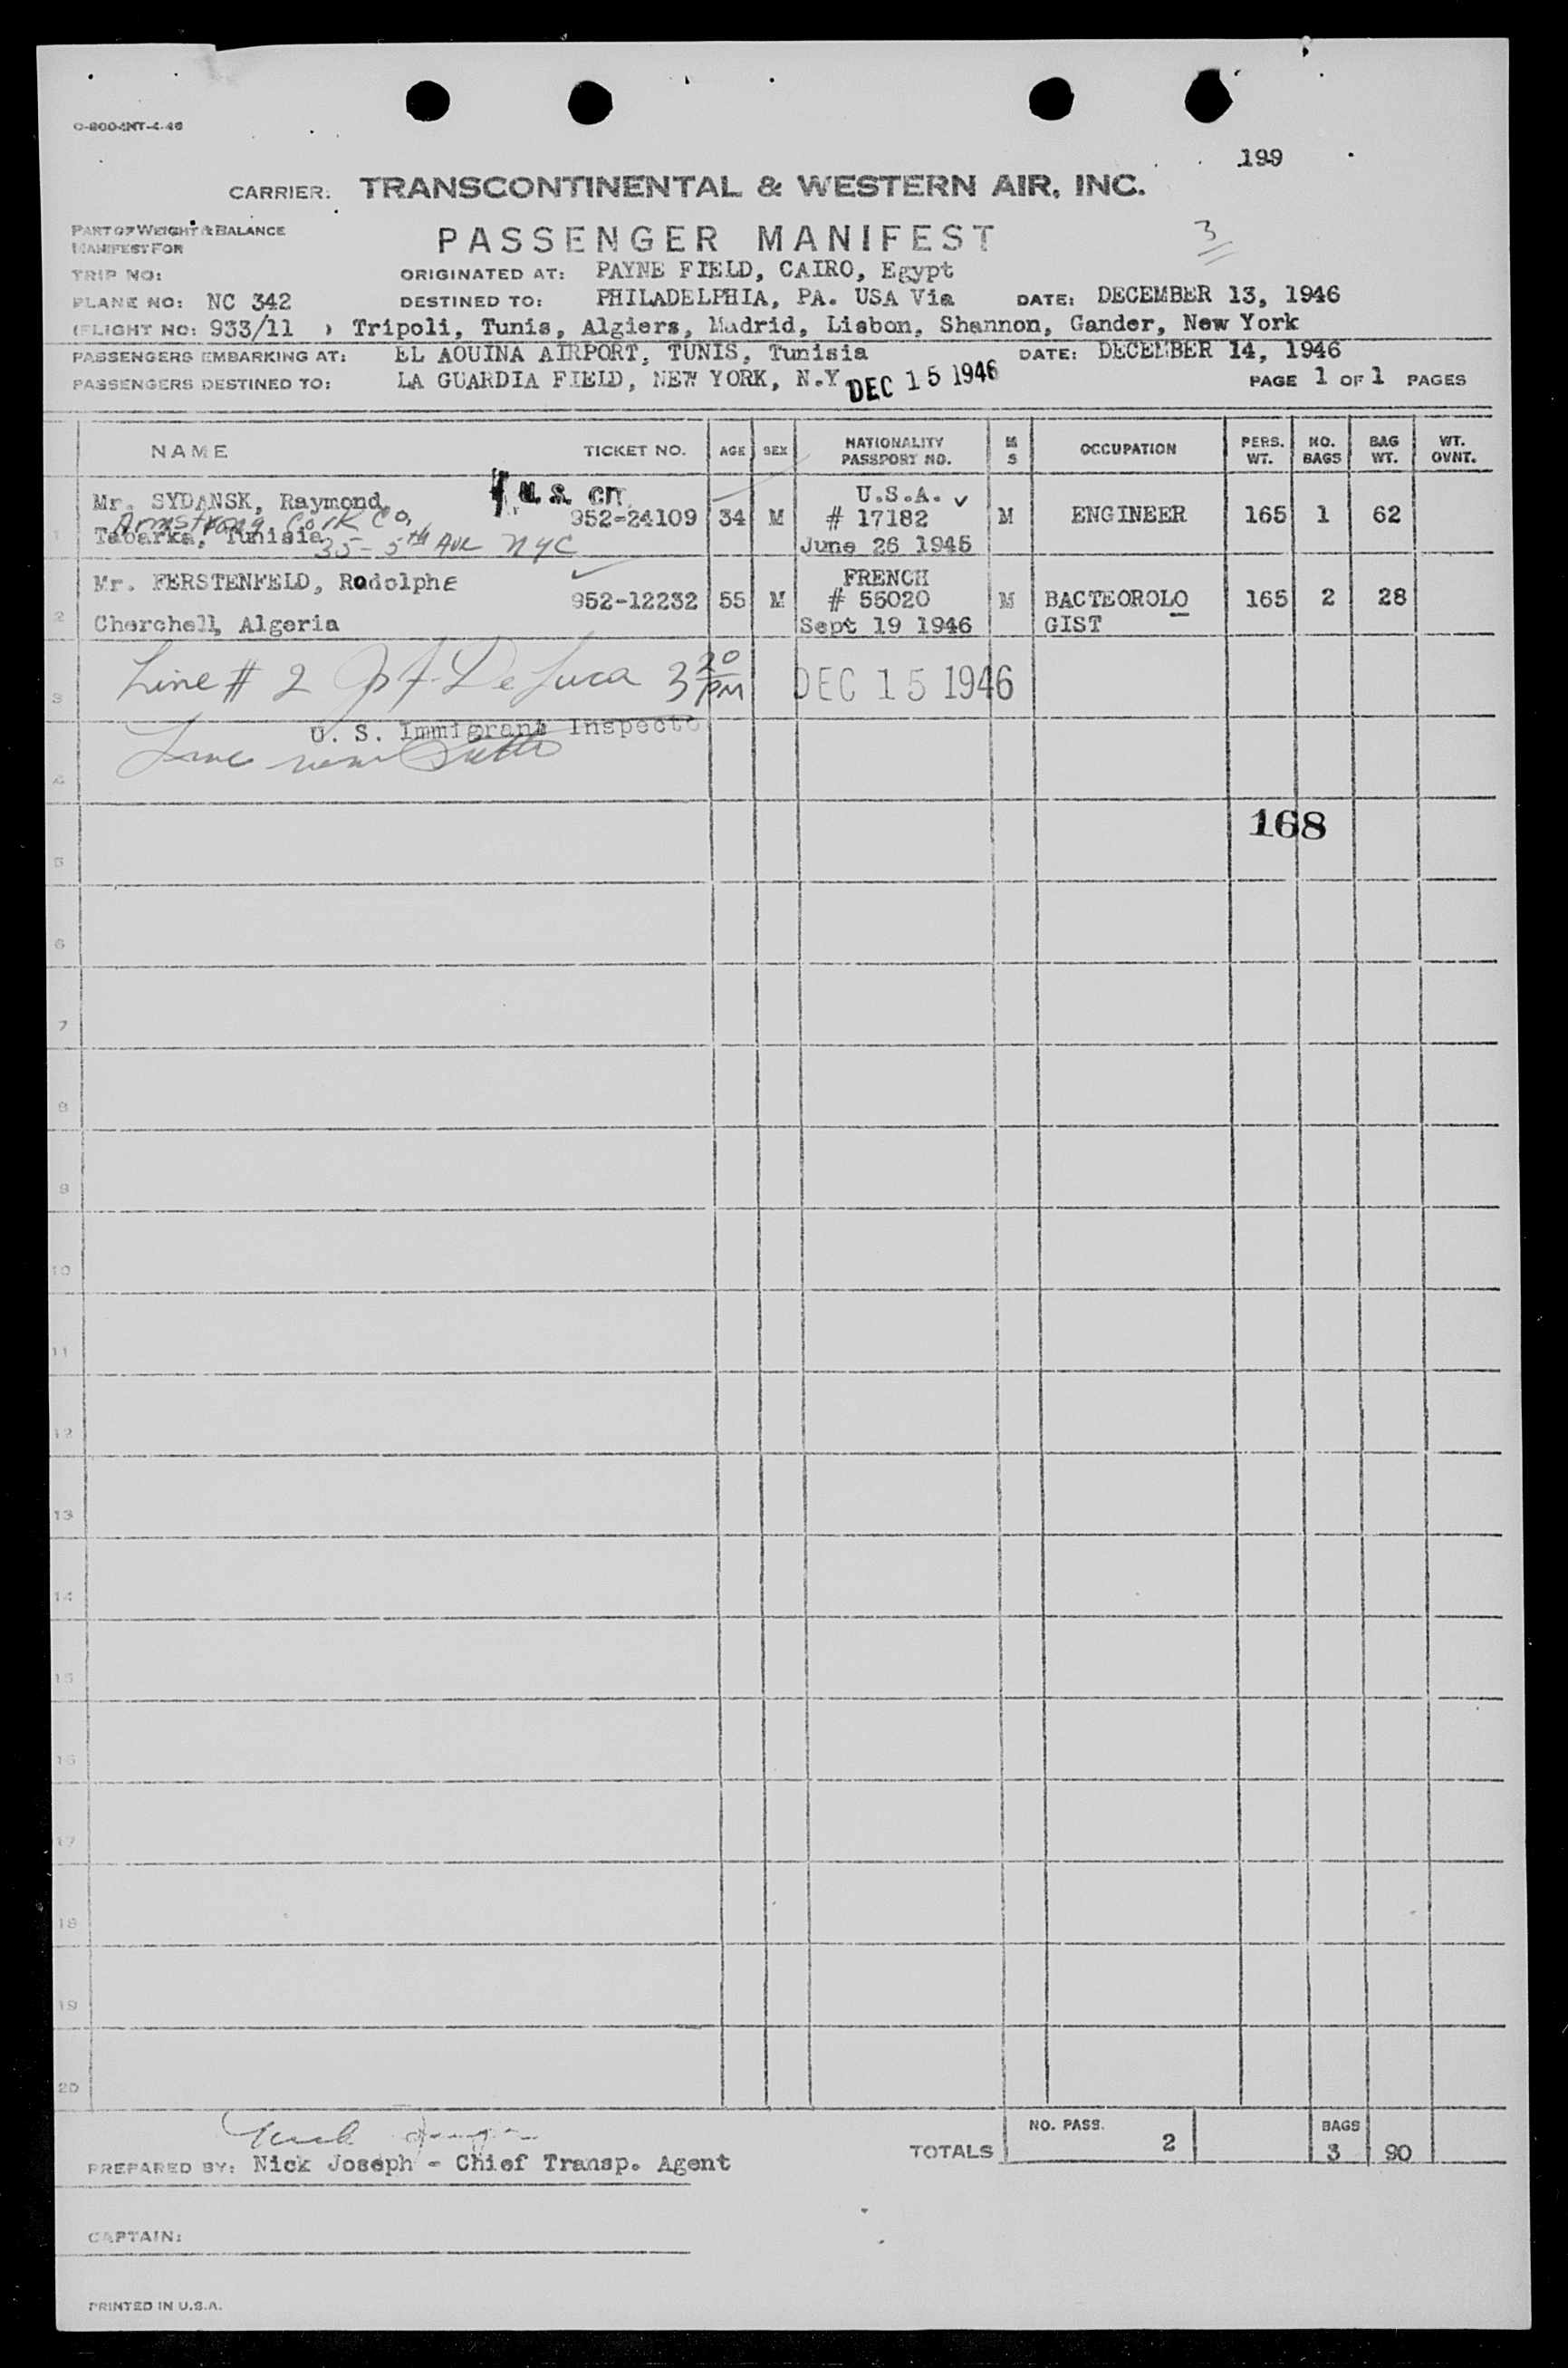 O-8004NT-4-46
199
CARRIER: TRANSCONTINENTAL & WESTERN AIR, INC.
PART OF WEIGHT & BALANCE
MANIFEST FOR
PASSENGER MANIFEST
3
TRIP NO:
ORIGINATED AT: PAYNE FIELD, CAIRO, Egypt
PLANE NO: NC 342 DESTINED TO: PHILADELPHIA, PA. USA Via DATE: DECEMBER 13, 1946
(FLIGHT NO: 933/11 ) Tripoli, Tunis, Algiers, Madrid, Lisbon, Shannon, Gander, New York
PASSENGERS EMBARKING AT: EL AOUINA AIRPORT, TUNIS, Tunisia DATE: DECEMBER 14, 1946
PASSENGERS DESTINED TO: LA GUARDIA FIELD, NEW YORK, N.Y. DEC 15 1946 PAGE 1 OF 1 PAGES
NAME TICKET NO. AGE SEX NATIONALITY PASSPORT NO. M S OCCUPATION PERS. WT. NO. BAGS BAG WT. WT. OVNT.
Mr. SYDANSK, Raymond U.S. CIT. U.S.A.
1 Armstrong Cork Co, 952-24109 34 M # 17182 M ENGINEER 165 1 62
Tabarka, Tunisia 35- 5th Ave NYC June 26 1945
Mr. FERSTENFELD, Rodolphe FRENCH
2 952-12232 55 M # 55020 M BACTEOROLO 165 2 28
Cherchell, Algeria Sept 19 1946 GIST
3 Line # 2 De Luca 3 20 PM DEC 15 1946
U. S. Immigrant Inspecto
4 Line
168
5
6
7
8
9
10
11
12
13
14
15
16
17
18
19
20
TOTALS NO. PASS. 2 BAGS 3 90
PREPARED BY: Nick Joseph - Chief Transp. Agent
CAPTAIN:
PRINTED IN U.S.A.